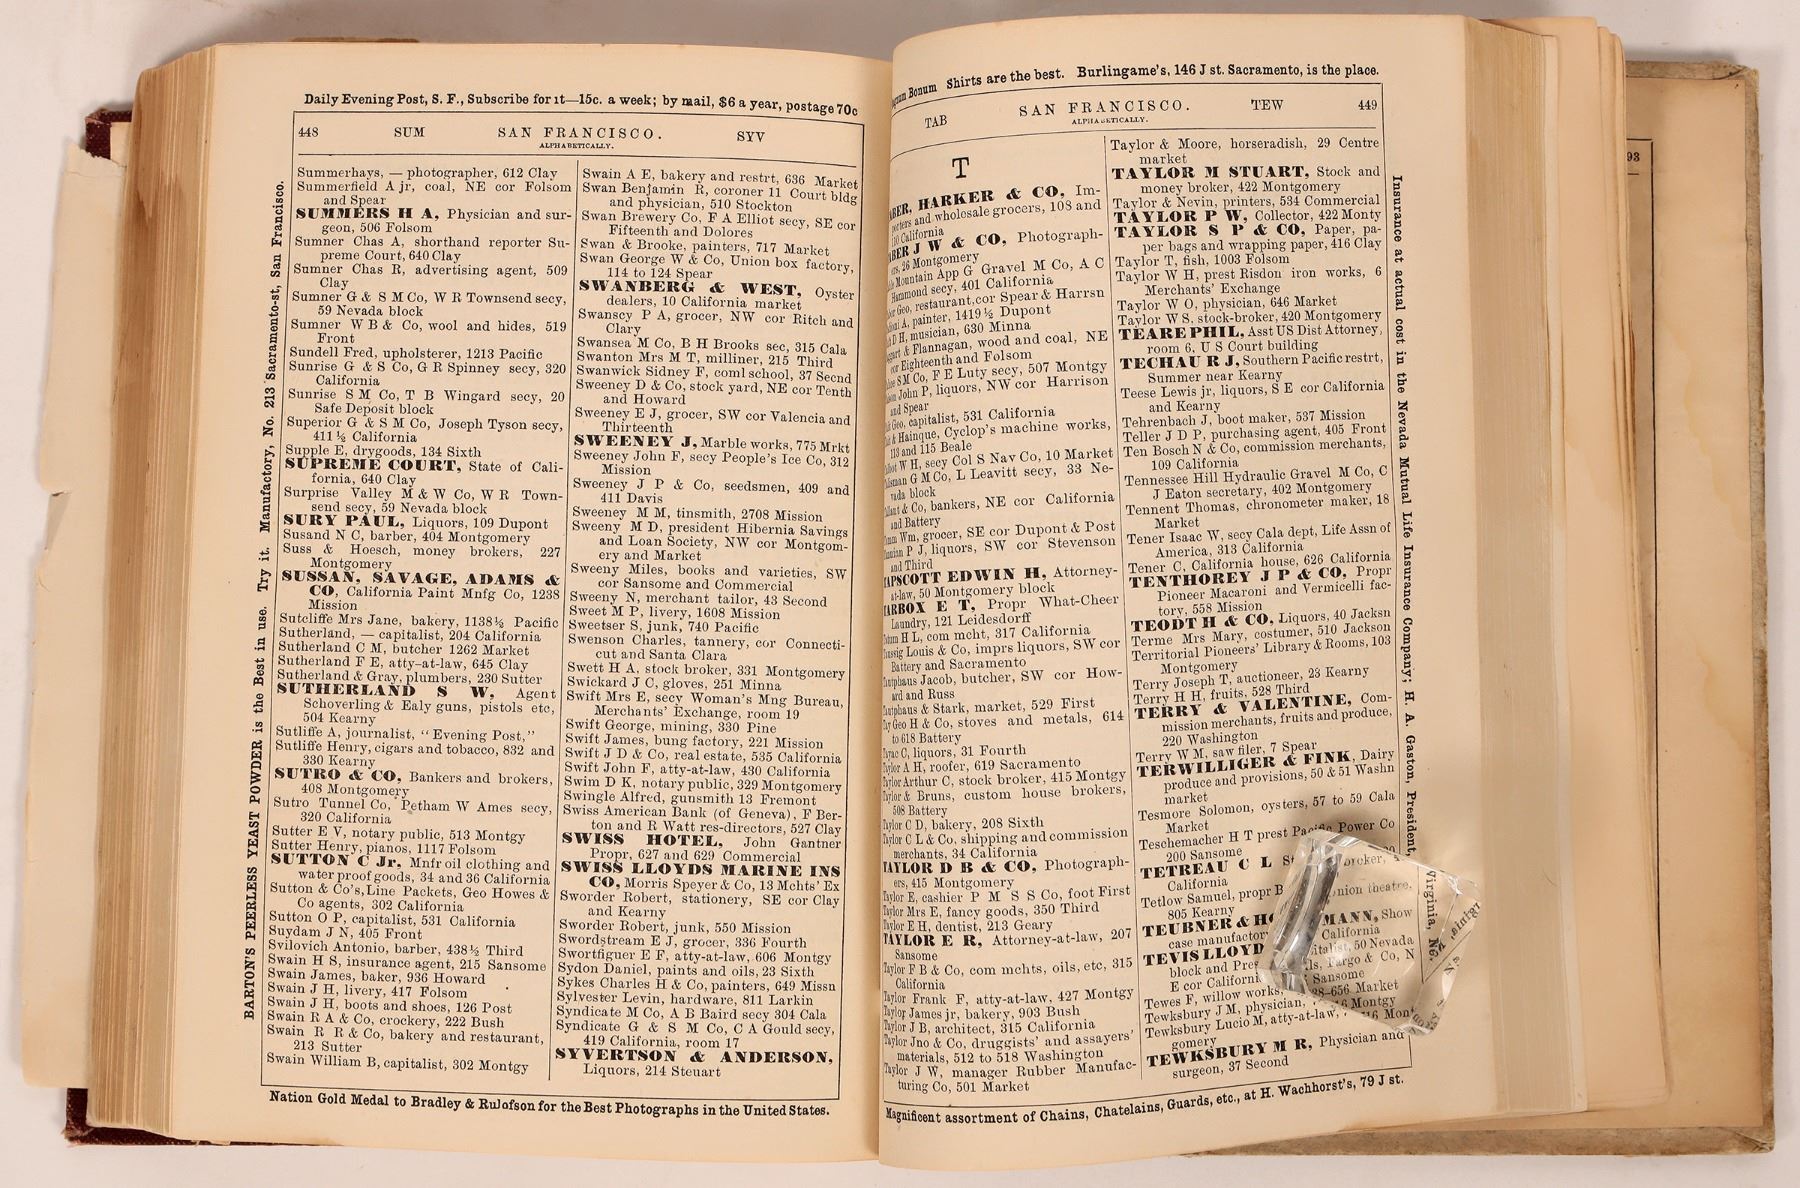 Daily Evening Post, S. F., Subscribe for it—15c. a week; by mail, $6 a year, postage 70c
448 SUM SAN FRANCISCO. SYV
ALPHABETICALLY.
Summerhays, — photographer, 612 Clay
Summerfield A jr, coal, NE cor Folsom
and Spear
SUMMERS H A, Physician and sur-
geon, 506 Folsom
Sumner Chas A, shorthand reporter Su-
preme Court, 640 Clay
Sumner Chas R, advertising agent, 509
Clay
Sumner G & S M Co, W R Townsend secy,
59 Nevada block
Sumner W B & Co, wool and hides, 519
Front
Sundell Fred, upholsterer, 1213 Pacific
Sunrise G & S Co, G R Spinney secy, 320
California
Sunrise S M Co, T B Wingard secy, 20
Safe Deposit block
Superior G & S M Co, Joseph Tyson secy,
411½ California
Supple E, drygoods, 134 Sixth
SUPREME COURT, State of Cali-
fornia, 640 Clay
Surprise Valley M & W Co, W R Town-
send secy, 59 Nevada block
SURY PAUL, Liquors, 109 Dupont
Susand N C, barber, 404 Montgomery
Suss & Hoesch, money brokers, 227
Montgomery
SUSSAN, SAVAGE, ADAMS &
CO, California Paint Mnfg Co, 1238
Mission
Sutcliffe Mrs Jane, bakery, 1138½ Pacific
Sutherland, — capitalist, 204 California
Sutherland C M, butcher 1262 Market
Sutherland F E, atty-at-law, 645 Clay
Sutherland & Gray, plumbers, 230 Sutter
SUTHERLAND S W, Agent
Schoverling & Ealy guns, pistols etc,
504 Kearny
Sutliffe A, journalist, "Evening Post,"
Sutliffe Henry, cigars and tobacco, 832 and
330 Kearny
SUTRO & CO, Bankers and brokers,
408 Montgomery
Sutro Tunnel Co, Petham W Ames secy,
320 California
Sutter E V, notary public, 513 Montgy
Sutter Henry, pianos, 1117 Folsom
SUTTON C Jr, Mnfr oil clothing and
water proof goods, 34 and 36 California
Sutton & Co's, Line Packets, Geo Howes &
Co agents, 302 California
Sutton O P, capitalist, 531 California
Suydam J N, 405 Front
Svilovich Antonio, barber, 438½ Third
Swain H S, insurance agent, 215 Sansome
Swain James, baker, 936 Howard
Swain J H, livery, 417 Folsom
Swain J H, boots and shoes, 126 Post
Swain R A & Co, crockery, 222 Bush
Swain R R & Co, bakery and restaurant,
213 Sutter
Swain William B, capitalist, 302 Montgy
Swain A E, bakery and restrt, 636 Market
Swan Benjamin R, coroner 11 Court bldg
and physician, 510 Stockton
Swan Brewery Co, F A Elliot secy, SE cor
Fifteenth and Dolores
Swan & Brooke, painters, 717 Market
Swan George W & Co, Union box factory,
114 to 124 Spear
SWANBERG & WEST, Oyster
dealers, 10 California market
Swanscy P A, grocer, NW cor Ritch and
Clary
Swansea M Co, B H Brooks sec, 315 Cala
Swanton Mrs M T, milliner, 215 Third
Swanwick Sidney F, coml school, 37 Secnd
Sweeney D & Co, stock yard, NE cor Tenth
and Howard
Sweeney E J, grocer, SW cor Valencia and
Thirteenth
SWEENEY J, Marble works, 775 Mrkt
Sweeney John F, secy People's Ice Co, 312
Mission
Sweeney J P & Co, seedsmen, 409 and
411 Davis
Sweeney M M, tinsmith, 2708 Mission
Sweeny M D, president Hibernia Savings
and Loan Society, NW cor Montgom-
ery and Market
Sweeny Miles, books and varieties, SW
cor Sansome and Commercial
Sweeny N, merchant tailor, 43 Second
Sweet M P, livery, 1608 Mission
Sweetser S, junk, 740 Pacific
Swenson Charles, tannery, cor Connecti-
cut and Santa Clara
Swett H A, stock broker, 331 Montgomery
Swickard J C, gloves, 251 Minna
Swift Mrs E, secy Woman's Mng Bureau,
Merchants' Exchange, room 19
Swift George, mining, 330 Pine
Swift James, bung factory, 221 Mission
Swift J D & Co, real estate, 535 California
Swift John F, atty-at-law, 430 California
Swim D K, notary public, 329 Montgomery
Swingle Alfred, gunsmith 13 Fremont
Swiss American Bank (of Geneva), F Ber-
ton and R Watt res-directors, 527 Clay
SWISS HOTEL, John Gantner
Propr, 627 and 629 Commercial
SWISS LLOYDS MARINE INS
CO, Morris Speyer & Co, 13 Mchts' Ex
Sworder Robert, stationery, SE cor Clay
and Kearny
Sworder Robert, junk, 550 Mission
Swordstream E J, grocer, 336 Fourth
Swortfiguer E F, atty-at-law, 606 Montgy
Sydon Daniel, paints and oils, 23 Sixth
Sykes Charles H & Co, painters, 649 Missn
Sylvester Levin, hardware, 811 Larkin
Syndicate M Co, A B Baird secy 304 Cala
Syndicate G & S M Co, C A Gould secy,
419 California, room 17
SYVERTSON & ANDERSON,
Liquors, 214 Steuart
BARTON'S PEERLESS YEAST POWDER is the Best in use. Try it. Manufactory, No. 213 Sacramento-st, San Francisco.
Nation Gold Medal to Bradley & Rulofson for the Best Photographs in the United States.
Bonum Shirts are the best. Burlingame's, 146 J st. Sacramento, is the place.
TAB SAN FRANCISCO. TEW 449
ALPHABETICALLY.
T
HARKER & CO, Im-
porters and wholesale grocers, 108 and
California
J W & CO, Photograph-
26 Montgomery
Mountain App G Gravel M Co, A C
Hammond secy, 401 California
Geo, restaurant, cor Spear & Harrsn
A, painter, 1419½ Dupont
D H, musician, 630 Minna
& Flannagan, wood and coal, NE
cor Eighteenth and Folsom
S M Co, F E Luty secy, 507 Montgy
John P, liquors, NW cor Harrison
and Spear
Geo, capitalist, 531 California
& Hainque, Cyclop's machine works,
113 and 115 Beale
W H, secy Col S Nav Co, 10 Market
G M Co, L Leavitt secy, 33 Ne-
vada block
& Co, bankers, NE cor California
and Battery
Wm, grocer, SE cor Dupont & Post
P J, liquors, SW cor Stevenson
and Third
TAPSCOTT EDWIN H, Attorney-
at-law, 50 Montgomery block
TARBOX E T, Propr What-Cheer
Laundry, 121 Leidesdorff
H L, com mcht, 317 California
Taussig Louis & Co, imprs liquors, SW cor
Battery and Sacramento
Tautphaus Jacob, butcher, SW cor How-
ard and Russ
Tautphaus & Stark, market, 529 First
Tay Geo H & Co, stoves and metals, 614
to 618 Battery
C, liquors, 31 Fourth
Taylor A H, roofer, 619 Sacramento
Taylor Arthur C, stock broker, 415 Montgy
Taylor & Bruns, custom house brokers,
508 Battery
Taylor C D, bakery, 208 Sixth
Taylor C L & Co, shipping and commission
merchants, 34 California
TAYLOR D B & CO, Photograph-
ers, 415 Montgomery
Taylor E, cashier P M S S Co, foot First
Taylor Mrs E, fancy goods, 350 Third
Taylor E H, dentist, 213 Geary
TAYLOR E R, Attorney-at-law, 207
Sansome
Taylor F B & Co, com mchts, oils, etc, 315
California
Taylor Frank F, atty-at-law, 427 Montgy
Taylor James jr, bakery, 903 Bush
Taylor J B, architect, 315 California
Taylor Jno & Co, druggists' and assayers'
materials, 512 to 518 Washington
Taylor J W, manager Rubber Manufac-
turing Co, 501 Market
Taylor & Moore, horseradish, 29 Centre
market
TAYLOR M STUART, Stock and
money broker, 422 Montgomery
Taylor & Nevin, printers, 534 Commercial
TAYLOR P W, Collector, 422 Monty
TAYLOR S P & CO, Paper, pa-
per bags and wrapping paper, 416 Clay
Taylor T, fish, 1003 Folsom
Taylor W H, prest Risdon iron works, 6
Merchants' Exchange
Taylor W O, physician, 646 Market
Taylor W S, stock-broker, 420 Montgomery
TEARE PHIL, Asst US Dist Attorney,
room 6, U S Court building
TECHAU R J, Southern Pacific restrt,
Summer near Kearny
Teese Lewis jr, liquors, S E cor California
and Kearny
Tehrenbach J, boot maker, 537 Mission
Teller J D P, purchasing agent, 405 Front
Ten Bosch N & Co, commission merchants,
109 California
Tennessee Hill Hydraulic Gravel M Co, C
J Eaton secretary, 402 Montgomery
Tennent Thomas, chronometer maker, 18
Market
Tener Isaac W, secy Cala dept, Life Assn of
America, 313 California
Tener C, California house, 626 California
TENTHOREY J P & CO, Propr
Pioneer Macaroni and Vermicelli fac-
tory, 558 Mission
TEODT H & CO, Liquors, 40 Jacksn
Terme Mrs Mary, costumer, 510 Jackson
Territorial Pioneers' Library & Rooms, 103
Montgomery
Terry Joseph T, auctioneer, 23 Kearny
Terry H H, fruits, 528 Third
TERRY & VALENTINE, Com-
mission merchants, fruits and produce,
220 Washington
Terry W M, saw filer, 7 Spear
TERWILLIGER & FINK, Dairy
produce and provisions, 50 & 51 Washn
market
Tesmore Solomon, oysters, 57 to 59 Cala
Market
Teschemacher H T prest Pacific Power Co
200 Sansome
TETREAU C L broker,
California
Tetlow Samuel, propr B nion theatre,
805 Kearny
TEUBNER & HO MANN, Show
case manufactor California
TEVIS LLOYD italist, 50 Nevada
block and Pres ls, Fargo & Co, N
E cor Californ Sansome
Tewes F, willow works, 38-656 Market
Tewksbury J M, physician, 6 Montgy
Tewksbury Lucio M, atty-at-law, 16 Mont
gomery
TEWKSBURY M R, Physician and
surgeon, 37 Second
Insurance at actual cost in the Nevada Mutual Life Insurance Company; H. A. Gaston, President, Virginia, N
Magnificent assortment of Chains, Chatelains, Guards, etc., at H. Wachhorst's, 79 J st.
93